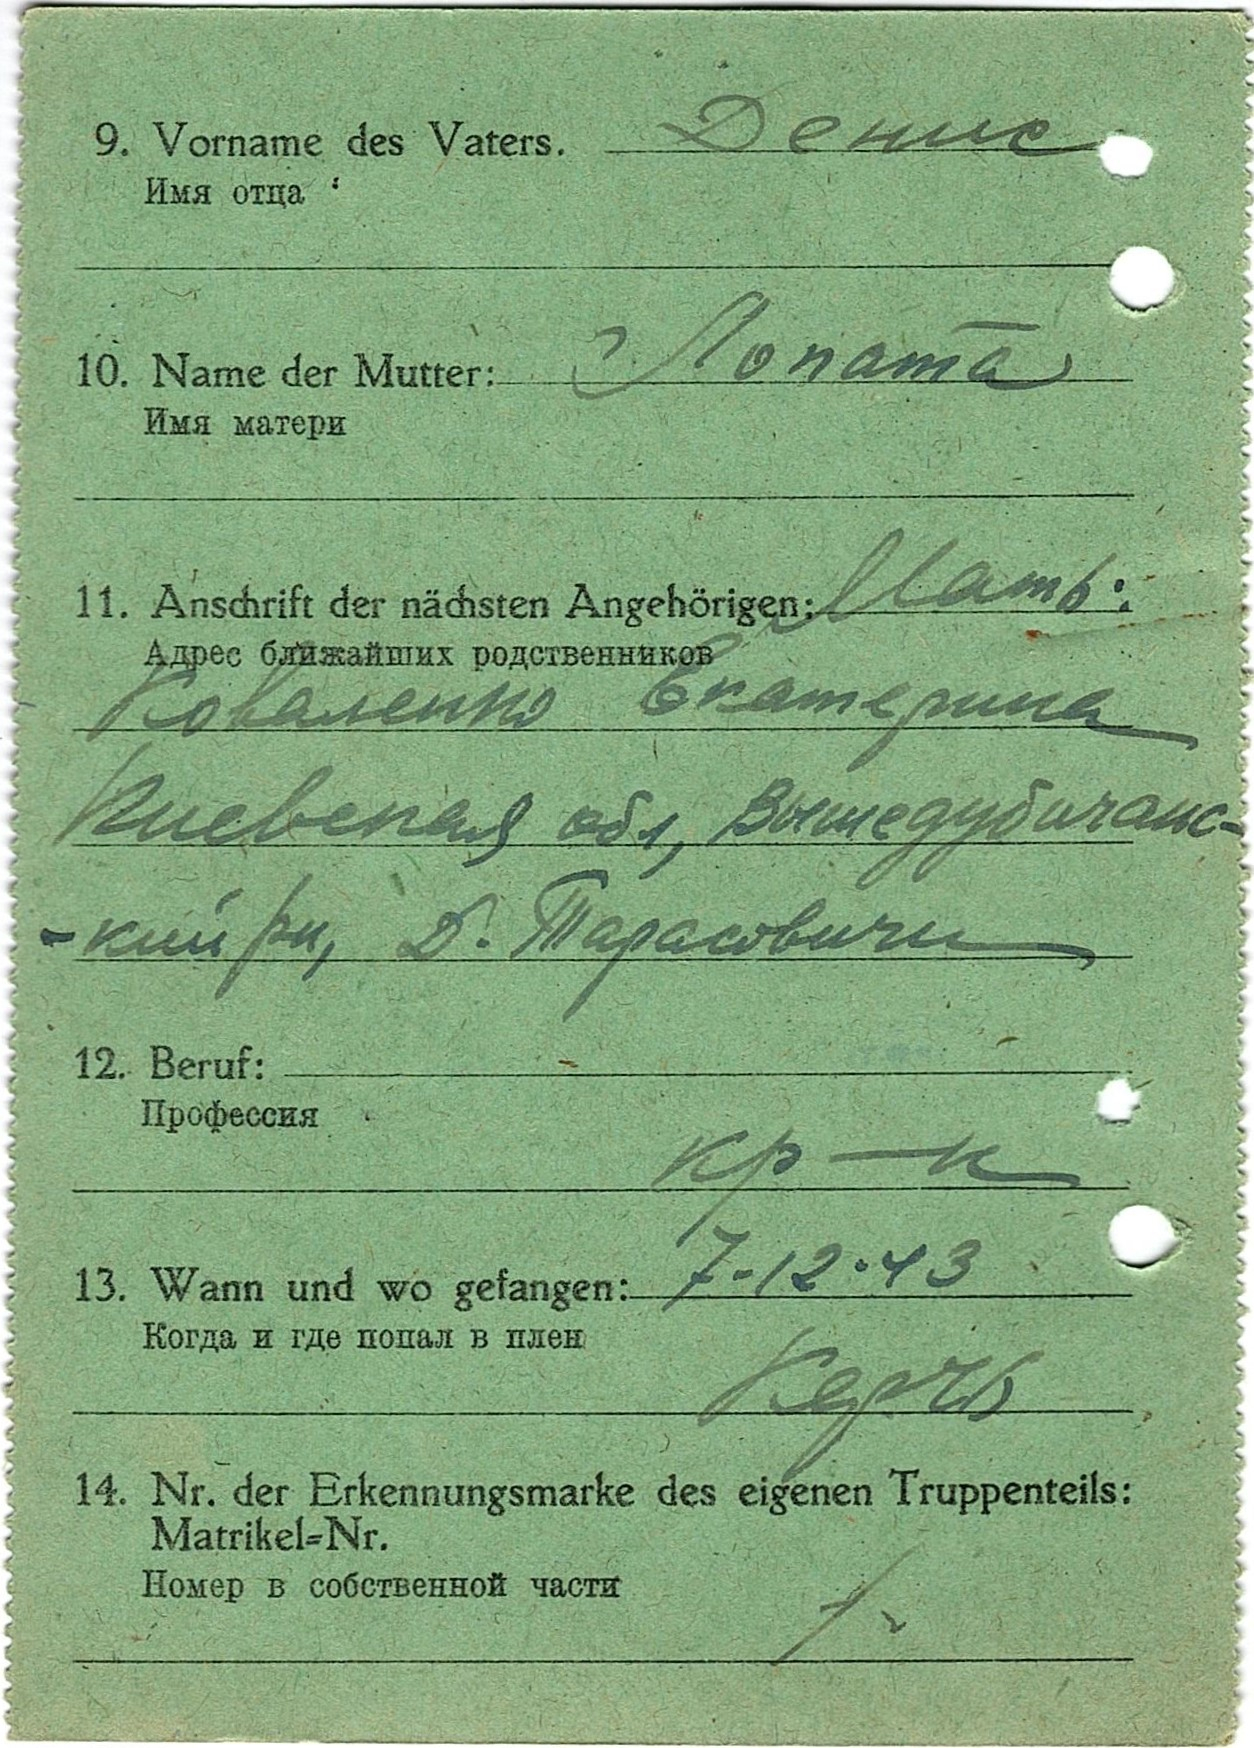 9. Vorname des Vaters. Денис
Имя отца
10. Name der Mutter: Лопата
Имя матери
11. Anschrift der nächsten Angehörigen: Мать:
Адрес ближайших родственников
Коваленко Екатерина
Киевская обл, Вышедубичанс-
-кий рн, Д. Тарасовичи
12. Beruf:
Профессия
кр-к
13. Wann und wo gefangen: 7-12-43
Когда и где попал в плен
Керчь
14. Nr. der Erkennungsmarke des eigenen Truppenteils:
Matrikel=Nr.
Номер в собственной части